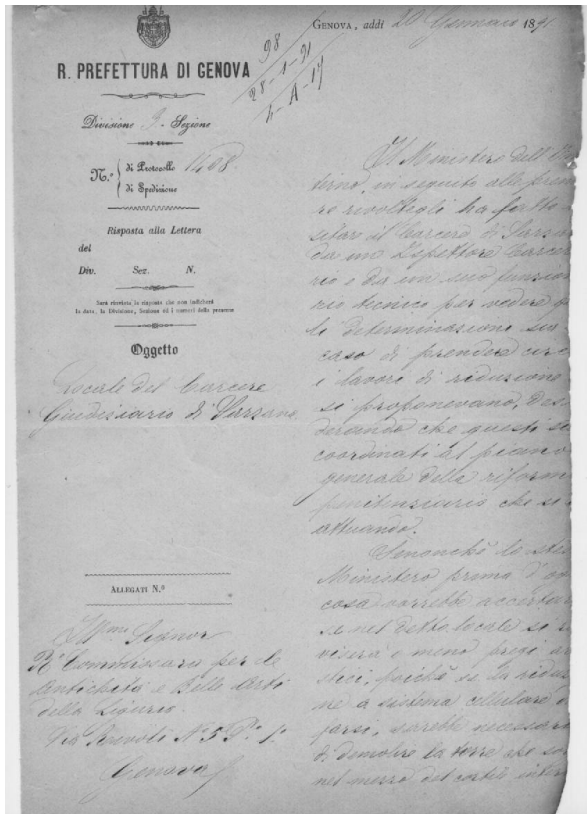 GENOVA, addì 20 Gennaio 1891
98
28-1-91
4-A-17
R. PREFETTURA DI GENOVA
Divisione 3ª Sezione
N.º di Protocollo 1408
di Spedizione
Risposta alla Lettera
del
Div. Sez. N.
Sarà rinviata la risposta che non indicherà
la data, la Divisione, Sezione ed i numeri della presente
Oggetto
Locale del Carcere
Giudiziario di Sarzana
ALLEGATI N.º
Ill.mo Signor
R.º Commissario per le
Antichità e Belle Arti
della Liguria
Via N.º 5 P.º 1.º
Genova
Il Ministero dell'In
terno, in seguito alle premu
re rivoltegli ha fatto
sitare il Carcere di Sarzan
da un Ispettore Carcer
rio e da un suo funzion
rio tecnico per vedere q
li determinazioni sia
caso di prendere circ
i lavori di riduzione
si proponevano, desi
derando che questi si
coordinati al piano
generale della riform
penitenziaria che si
attuando.
Senonchè lo ste
Ministero prima d'og
cosa vorrebbe accerta
se nel detto locale si r
visera o meno pregi ar
stici, poichè se la riduz
ne a sistema cellulare d
farsi, sarebbe necessari
di demolire la torre che so
nel mezzo del cortile inter